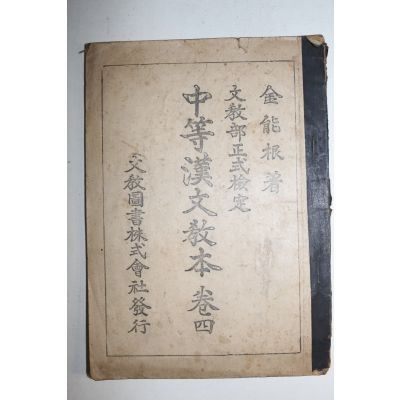 金能根著
文敎部正式檢定
中等漢文敎本 卷四
文敎圖書株式會社發行